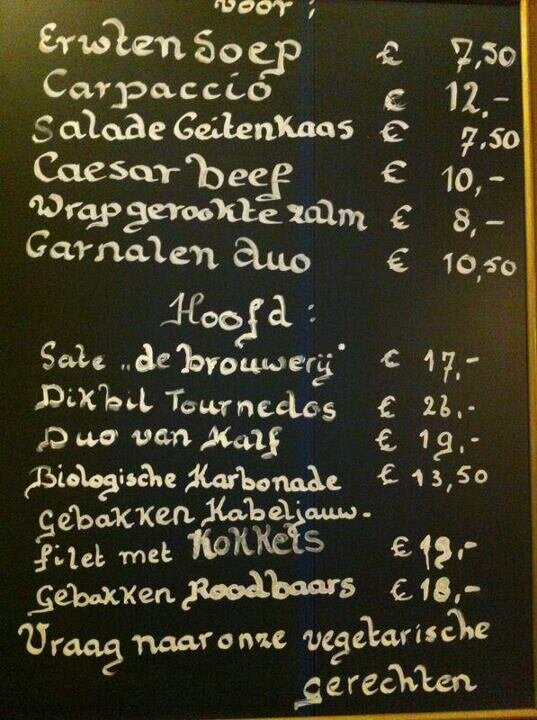 voor:
Erwten Soep € 7,50
Carpaccio € 12,-
Salade Geitenkaas € 7,50
Caesar beef € 10,-
Wrap gerookte zalm € 8,-
Garnalen duo € 10,50
Hoofd:
Sate „de brouwerij" € 17,-
Dikbil Tournedos € 26,-
Duo van Kalf € 19,-
Biologische Karbonade € 13,50
Gebakken Kabeljauw-
filet met Kokkels € 19,-
Gebakken Roodbaars € 18,-
Vraag naar onze vegetarische
gerechten